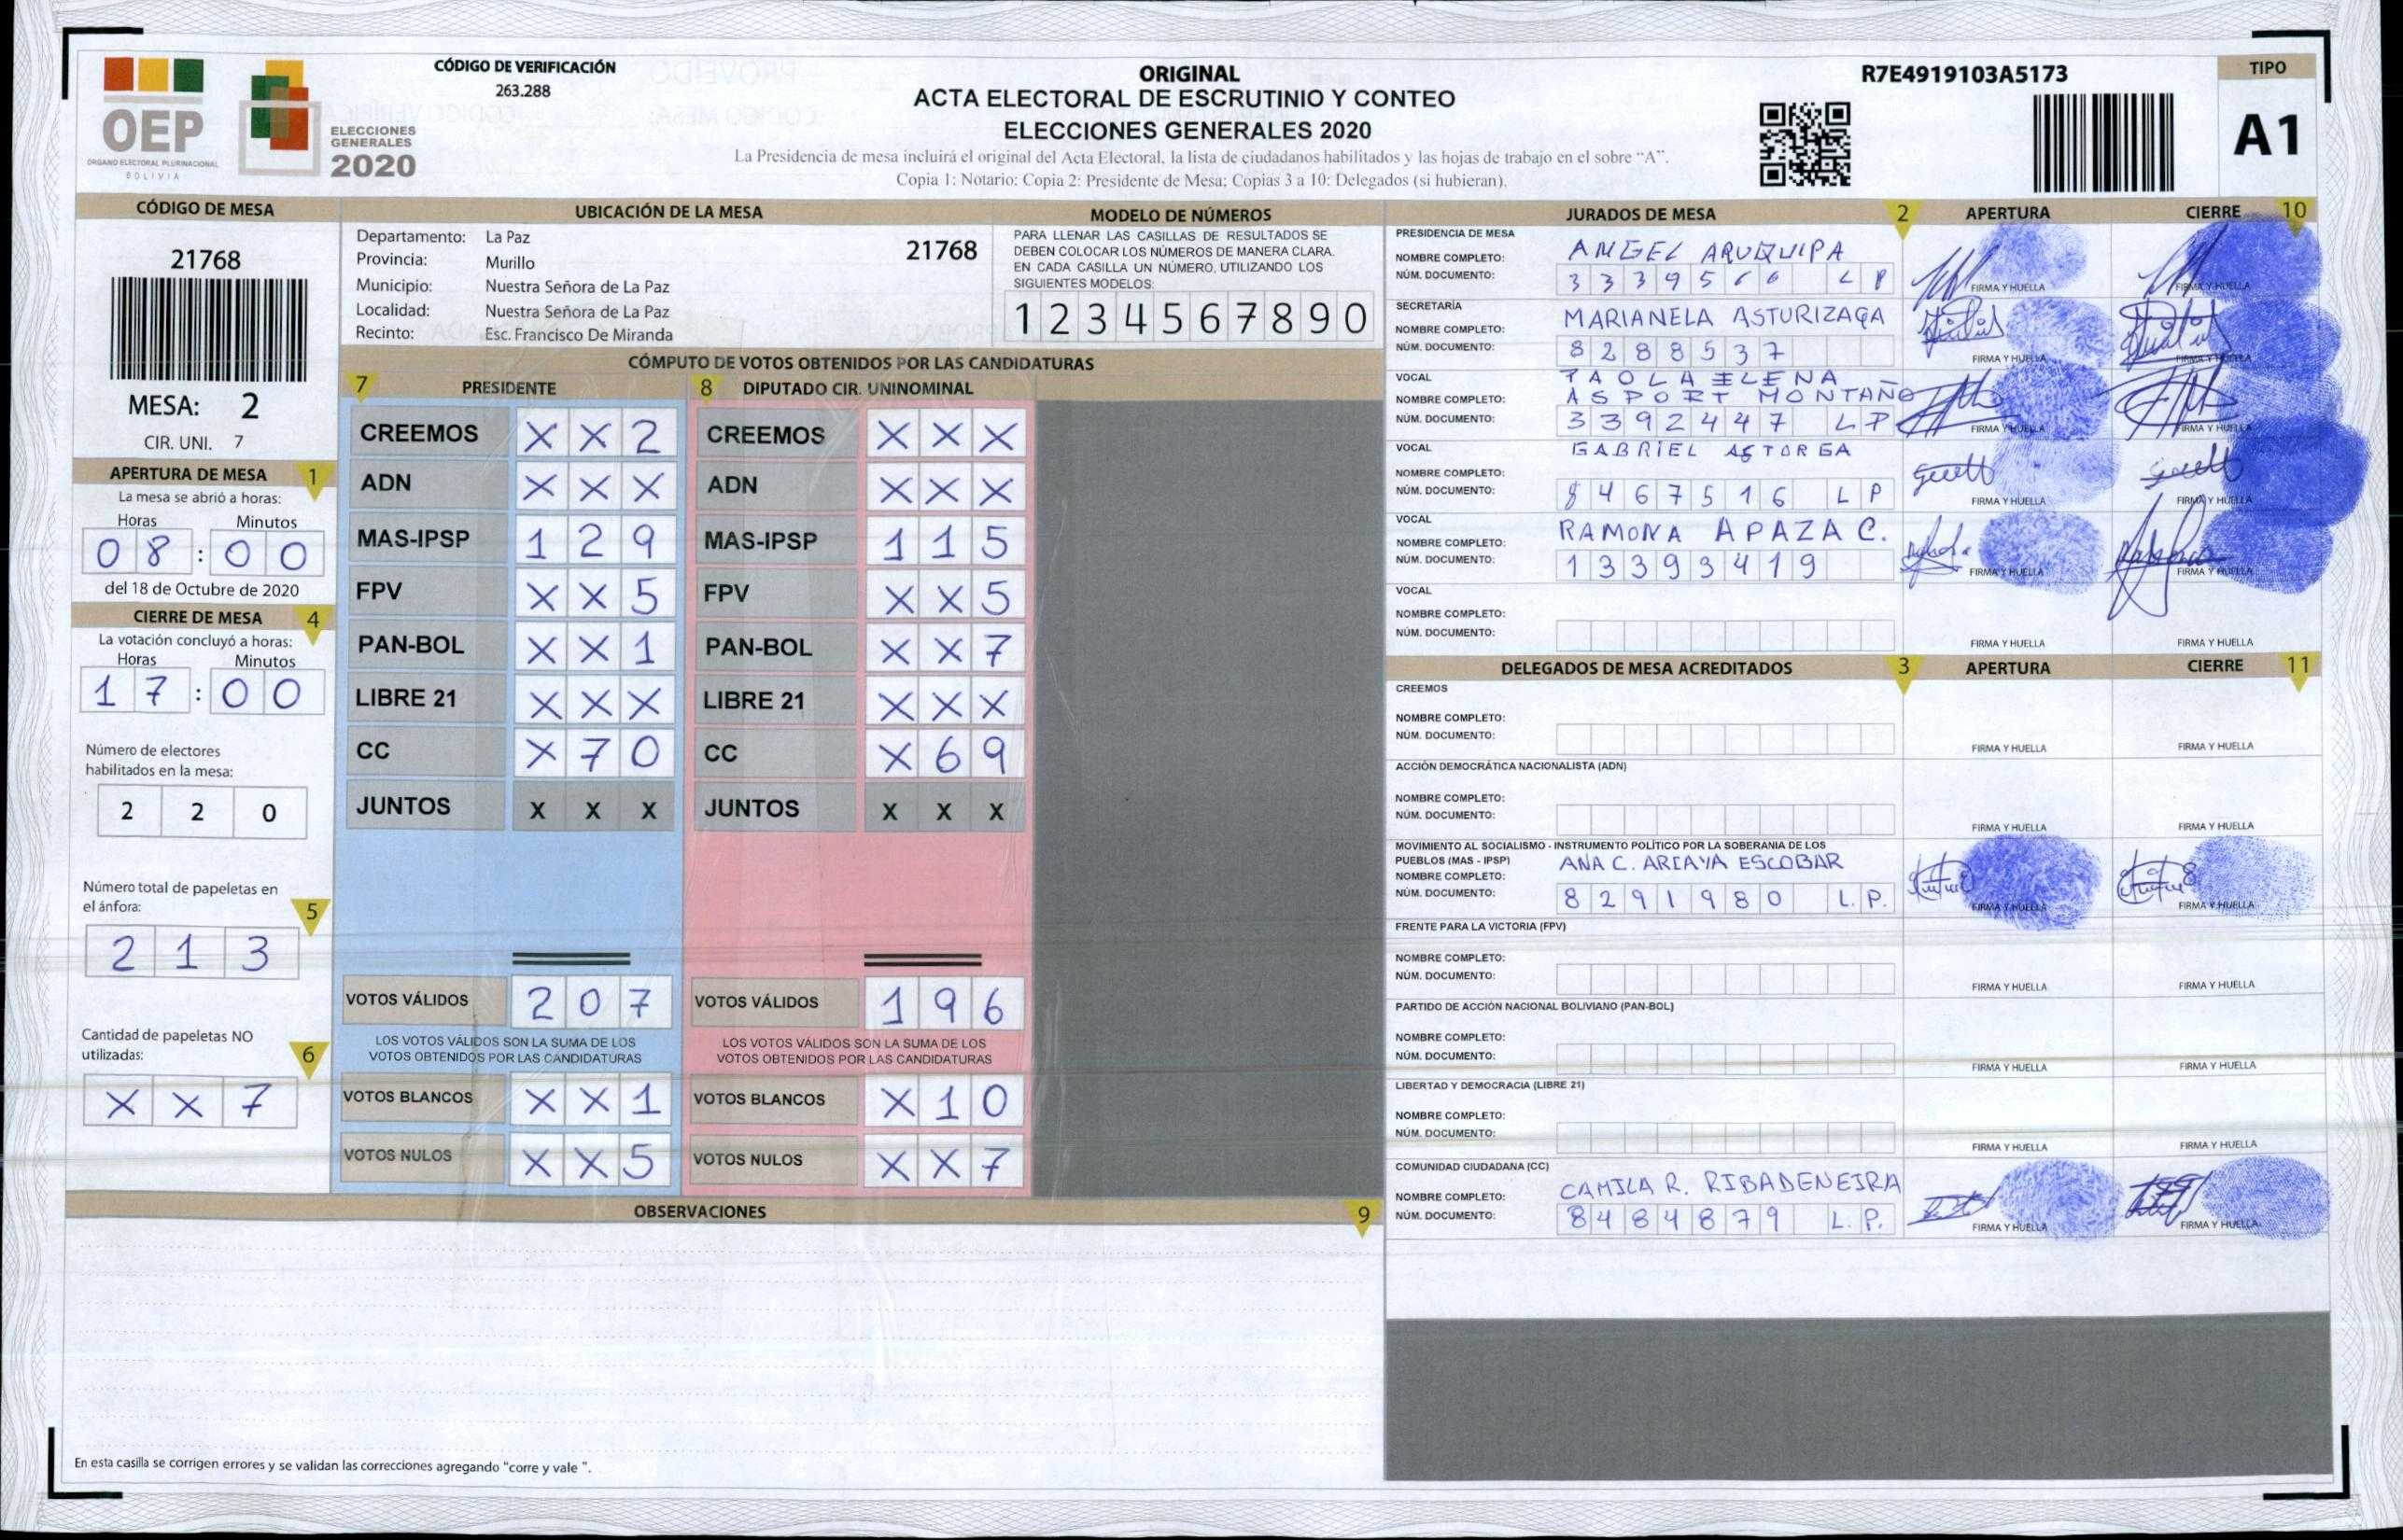 OEP
ÓRGANO ELECTORAL PLURINACIONAL
BOLIVIA
ELECCIONES
GENERALES
2020
CÓDIGO DE VERIFICACIÓN
263.288
ORIGINAL
ACTA ELECTORAL DE ESCRUTINIO Y CONTEO
ELECCIONES GENERALES 2020
La Presidencia de mesa incluirá el original del Acta Electoral, la lista de ciudadanos habilitados y las hojas de trabajo en el sobre “A”.
Copia 1: Notario: Copia 2: Presidente de Mesa; Copias 3 a 10: Delegados (si hubieran).
R7E4919103A5173
TIPO
A1
CÓDIGO DE MESA
21768
MESA: 2
CIR. UNI. 7
APERTURA DE MESA 1
La mesa se abrió a horas:
Horas Minutos
0 8 : 0 0
del 18 de Octubre de 2020
CIERRE DE MESA 4
La votación concluyó a horas:
Horas Minutos
1 7 : 0 0
Número de electores
habilitados en la mesa:
2 2 0
Número total de papeletas en
el ánfora: 5
2 1 3
Cantidad de papeletas NO
utilizadas: 6
X X 7
UBICACIÓN DE LA MESA
Departamento: La Paz 21768
Provincia: Murillo
Municipio: Nuestra Señora de La Paz
Localidad: Nuestra Señora de La Paz
Recinto: Esc. Francisco De Miranda
MODELO DE NÚMEROS
PARA LLENAR LAS CASILLAS DE RESULTADOS SE
DEBEN COLOCAR LOS NÚMEROS DE MANERA CLARA.
EN CADA CASILLA UN NÚMERO, UTILIZANDO LOS
SIGUIENTES MODELOS:
1 2 3 4 5 6 7 8 9 0
CÓMPUTO DE VOTOS OBTENIDOS POR LAS CANDIDATURAS
7 PRESIDENTE 8 DIPUTADO CIR. UNINOMINAL
CREEMOS X X 2 CREEMOS X X X
ADN X X X ADN X X X
MAS-IPSP 1 2 9 MAS-IPSP 1 1 5
FPV X X 5 FPV X X 5
PAN-BOL X X 1 PAN-BOL X X 7
LIBRE 21 X X X LIBRE 21 X X X
CC X 7 0 CC X 6 9
JUNTOS X X X JUNTOS X X X
VOTOS VÁLIDOS 2 0 7 VOTOS VÁLIDOS 1 9 6
LOS VOTOS VÁLIDOS SON LA SUMA DE LOS LOS VOTOS VÁLIDOS SON LA SUMA DE LOS
VOTOS OBTENIDOS POR LAS CANDIDATURAS VOTOS OBTENIDOS POR LAS CANDIDATURAS
VOTOS BLANCOS X X 1 VOTOS BLANCOS X 1 0
VOTOS NULOS X X 5 VOTOS NULOS X X 7
OBSERVACIONES 9
En esta casilla se corrigen errores y se validan las correcciones agregando "corre y vale ".
JURADOS DE MESA 2 APERTURA CIERRE 10
PRESIDENCIA DE MESA
NOMBRE COMPLETO: ANGEL ARUQUIPA
NÚM. DOCUMENTO: 3 3 3 9 5 6 6 L P FIRMA Y HUELLA FIRMA Y HUELLA
SECRETARÍA
NOMBRE COMPLETO: MARIANELA ASTURIZAGA
NÚM. DOCUMENTO: 8 2 8 8 5 3 7 FIRMA Y HUELLA FIRMA Y HUELLA
VOCAL PAOLA ELENA
NOMBRE COMPLETO: ASPORT MONTAÑO
NÚM. DOCUMENTO: 3 3 9 2 4 4 7 L P FIRMA Y HUELLA FIRMA Y HUELLA
VOCAL GABRIEL ASTORGA
NOMBRE COMPLETO:
NÚM. DOCUMENTO: 8 4 6 7 5 1 6 L P FIRMA Y HUELLA FIRMA Y HUELLA
VOCAL
NOMBRE COMPLETO: RAMONA APAZA C.
NÚM. DOCUMENTO: 1 3 3 9 3 4 1 9 FIRMA Y HUELLA FIRMA Y HUELLA
VOCAL
NOMBRE COMPLETO:
NÚM. DOCUMENTO: FIRMA Y HUELLA FIRMA Y HUELLA
DELEGADOS DE MESA ACREDITADOS 3 APERTURA CIERRE 11
CREEMOS
NOMBRE COMPLETO:
NÚM. DOCUMENTO: FIRMA Y HUELLA FIRMA Y HUELLA
ACCIÓN DEMOCRÁTICA NACIONALISTA (ADN)
NOMBRE COMPLETO:
NÚM. DOCUMENTO: FIRMA Y HUELLA FIRMA Y HUELLA
MOVIMIENTO AL SOCIALISMO - INSTRUMENTO POLÍTICO POR LA SOBERANIA DE LOS
PUEBLOS (MAS - IPSP) ANA C. ARCAYA ESCOBAR
NOMBRE COMPLETO:
NÚM. DOCUMENTO: 8 2 9 1 9 8 0 L. P. FIRMA Y HUELLA FIRMA Y HUELLA
FRENTE PARA LA VICTORIA (FPV)
NOMBRE COMPLETO:
NÚM. DOCUMENTO: FIRMA Y HUELLA FIRMA Y HUELLA
PARTIDO DE ACCIÓN NACIONAL BOLIVIANO (PAN-BOL)
NOMBRE COMPLETO:
NÚM. DOCUMENTO: FIRMA Y HUELLA FIRMA Y HUELLA
LIBERTAD Y DEMOCRACIA (LIBRE 21)
NOMBRE COMPLETO:
NÚM. DOCUMENTO: FIRMA Y HUELLA FIRMA Y HUELLA
COMUNIDAD CIUDADANA (CC)
NOMBRE COMPLETO: CAMILA R. RIBADENEIRA
NÚM. DOCUMENTO: 8 4 8 4 8 7 9 L. P. FIRMA Y HUELLA FIRMA Y HUELLA